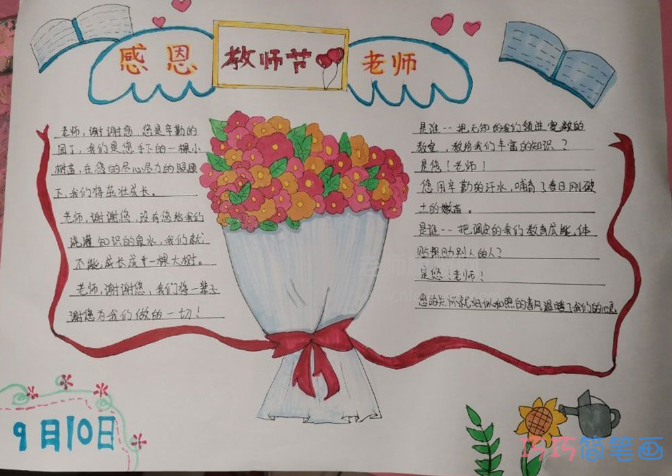 感恩
教师节
老师
老师,谢谢您,您是辛勤的
园丁,我们是您手下的一棵小
树苗,在您的尽心尽力的照顾
下,我们将茁壮成长。
老师,谢谢您,没有您给我们
浇灌知识的泉水,我们就
不能成长成为一棵大树。
老师,谢谢您,我们将一辈子
谢您为我们做的一切!
是谁--把无知的我们领进宽敞的
教室,教给我们丰富的知识?
是您!老师!
您用辛勤的汗水,哺育了春日刚破
土的嫩苗。
是谁--把调皮的我们教育成能体
贴帮助别人的人?
是您!老师!
您的关怀就好似和煦的春风温暖了我们的心灵
9月10日
巧巧简笔画